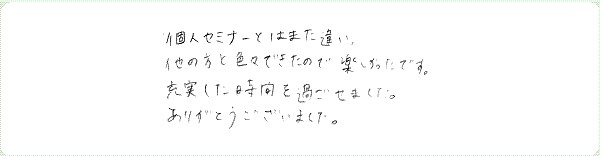 個人セミナーとはまた違い、
他の方と色々できたので楽しかったです。
充実した時間を過ごせました。
ありがとうございました。